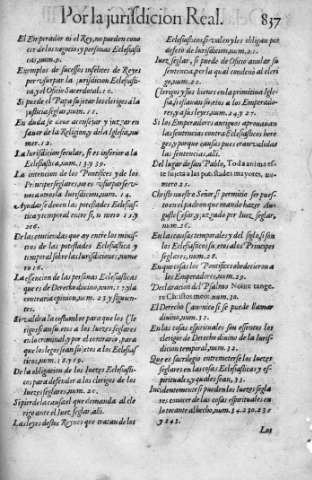 Por la jurisdicion Real. 837
El Emperador ni el Rey, no pueden cono
cer de los negocios y personas Eclesiasti
cas, num. 9.
Exemplos de sucessos infelices de Reyes
por usurpar la jurisdicion Eclesiasti-
ca, y el Oficio Sacerdotal. 10.
Si puede el Papa sujetar los clerigos a la
justicia seglar, num. 11.
En duda se deve aconsejar y juzgar en
favor de la Religion, y de la Iglesia, nu
mer. 12.
La jurisdicion secular, si es inferior a la
Eclesiastica, num. 13. y 39.
La intencion de los Pontifices y de los
Principes seglares, no es usurparse unos
a otros la jurisdicion, num. 14.
Ayudarse deven las potestades Eclesias
tica y temporal entre si, n. 15. y
216.
De las contiendas que ay entre los minis-
tros de las potestades Eclesiastica y
temporal sobre las jurisdiciones, nume
ro 16.
La esencion de las personas Eclesiasticas
que es de Derecho divino, num. 17. y la
contraria opinion, num. 23. y siguien-
tes.
Si valdria la costumbre para que los Cle
rigos fuessen sujetos a los juezes seglares
en lo criminal, y por el contrario, para
que los legos fuessen sujetos a los Eclesias
ticos, num. 18. y 19.
De la obligacion de los Iuezes Eclesiasti
cos para defender a los clerigos de los
juezes seglares, num. 20.
Si pierde la causa el que demanda al cle
rigo ante el Iuez seglar, alli.
Las leyes destos Reynos que tratan de los
Eclesiasticos, si valen y les obligan por
defeto de jurisdicion, num. 21.
Iuez seglar, si puede de Oficio anular su
sentencia, por la qual condenò al cleri
go, num. 22.
Clerigos y sus bienes en la primitiva Igle
sia, si estavan sujetos a los Emperado-
res, y a sus leyes, num. 24. y 27.
Si los Emperadores antiguos aprovavan
las sentencias contra Eclesiasticos here
ges, y porque causas pues eran validas
las sentencias, alli.
Del lugar de san Pablo, Toda anima es-
tè sujeta a las potestades mayores, nu-
mero 25.
Christo nuestro Señor si permitio ser pues-
to en el padron que mandò hazer Au-
gusto Cesar, y juzgado por Iuez seglar,
num. 26.
En las causas temporales y del siglo, si son
los Eclesiasticos sujetos a los Principes
seglares, num. 28.
En que cosas los Pontifices obedecieron a
los Emperadores, num. 29.
Declaracion del Psalmo Nolite tange-
re Christos meos, num. 30.
El Derecho Canonico si se puede llamar
divino, num. 31.
En las cosas espirituales son essentos los
clerigos de Derecho divino de la jurisdi-
cion temporal, num. 32.
Que es sacrilegio entremeterse los Iuezes
seglares en las cosas Eclesiasticas y es-
pirituales, y quales sean, 33.
Incidentemente si pueden los Iuezes segla
res conocer de las cosas espirituales en
lo tocante al hecho, num. 34. 230. 232
y 242.
Los